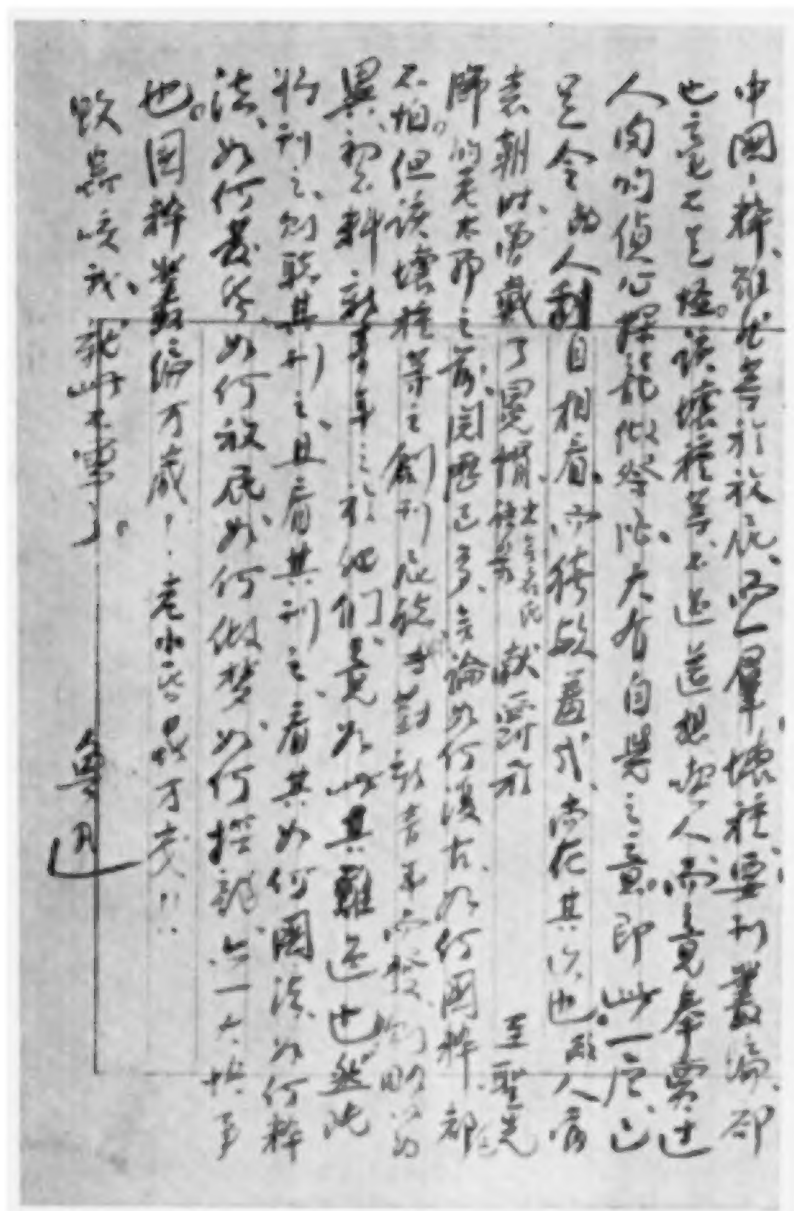 中國ゝ粹、雖然等於放屁、而一羣壞種、要刊叢編、却
也毫不足怪。該壞種等、不過還想喫人、而竟奉賣過
人肉的偵心探龍做祭酒、大有自覺之意。即此一層、已
足令敝人刮目相看、而猗歟羞哉、尚在其次也。敝人當
袁朝時、曾戴了冕帽 出無名氏語錄 獻爵於 至聖先
師的老太爺之前、閱歷已多、無論如何復古、如何國粹、都已
不怕。但該壞種等之創刊屁志、係專對新青年而發、則略以為
異、初不料新青年之於他們、竟如此其難過也。然既
將刊之、則聽其刊之、且看其刊之、看其如何國法、如何粹
法、如何發昏、如何放屁、如何做夢、如何探龍、亦一大快事
也。國粹叢編萬歲！老小昏蟲萬歲！！
蚊蟲咬我、就此不寫了。
魯迅